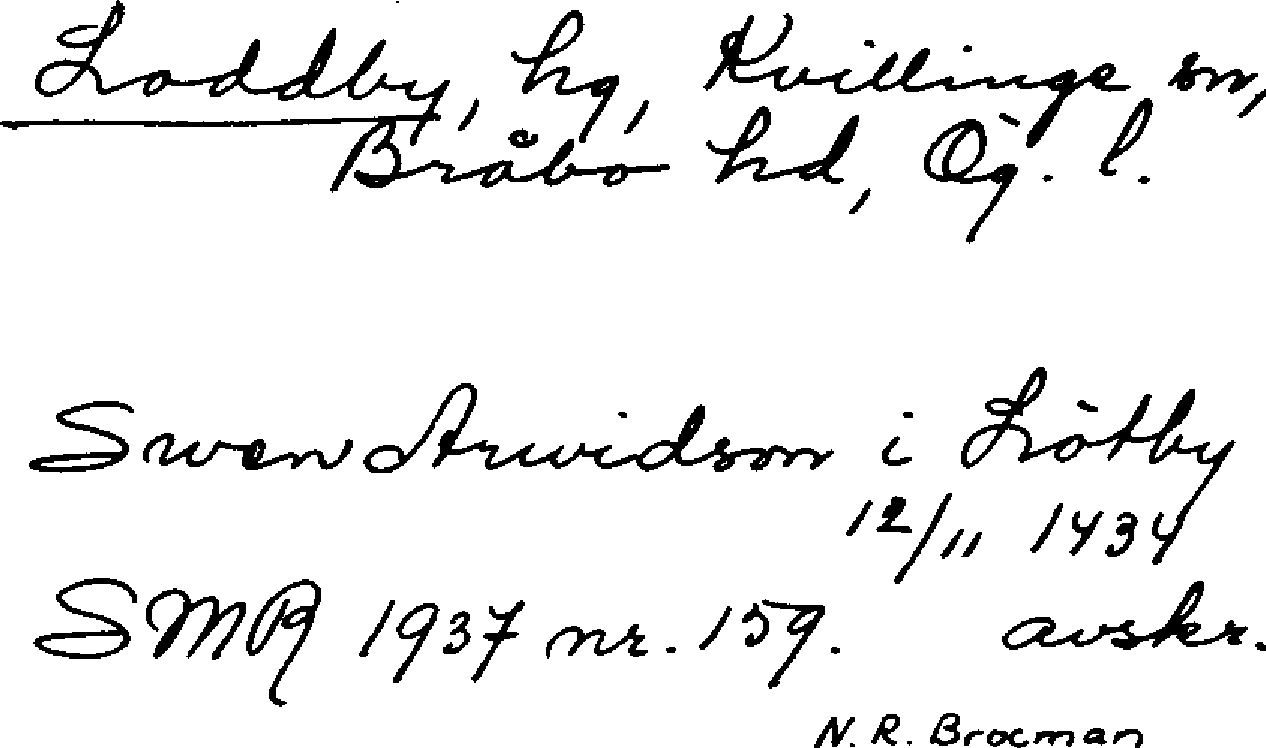 Loddby, hg, Kvillinge sn,
Bråbo hd, Ög. l.
Swen Arwidson i Lötby
12/11 1434
SMR 1937 nr. 159. avskr.
N. R. Brocman